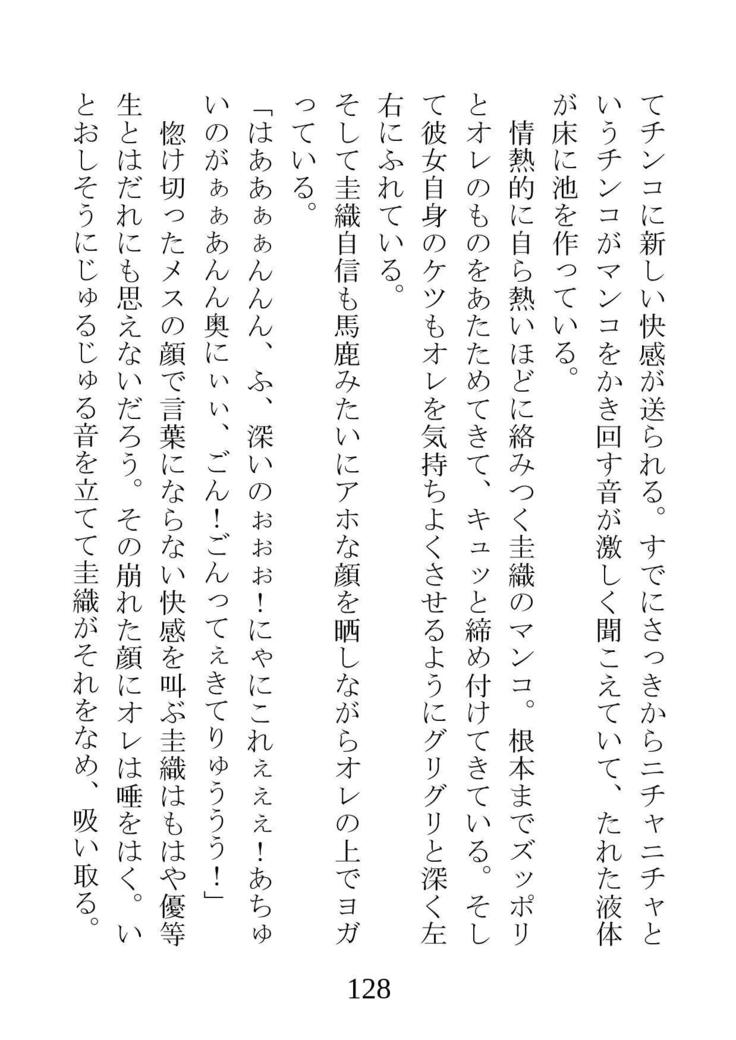 てチンコに新しい快感が送られる。すでにさっきからニチャニチャと
いうチンコがマンコをかき回す音が激しく聞こえていて、たれた液体
が床に池を作っている。
情熱的に自ら熱いほどに絡みつく圭織のマンコ。根本までズッポリ
とオレのものをあたためてきて、キュッと締め付けてきている。そし
て彼女自身のケツもオレを気持ちよくさせるようにグリグリと深く左
右にふれている。
そして圭織自信も馬鹿みたいにアホな顔を晒しながらオレの上でヨガ
っている。
「はああぁぁんんん、ふ、深いのぉぉぉ！にゃにこれぇぇぇ！あちゅ
いのがぁぁあんん奥にぃぃ、ごん！ごんってぇきてりゅううう！」
惚け切ったメスの顔で言葉にならない快感を叫ぶ圭織はもはや優等
生とはだれにも思えないだろう。その崩れた顔にオレは唾をはく。い
とおしそうにじゅるじゅる音を立てて圭織がそれをなめ、吸い取る。
128